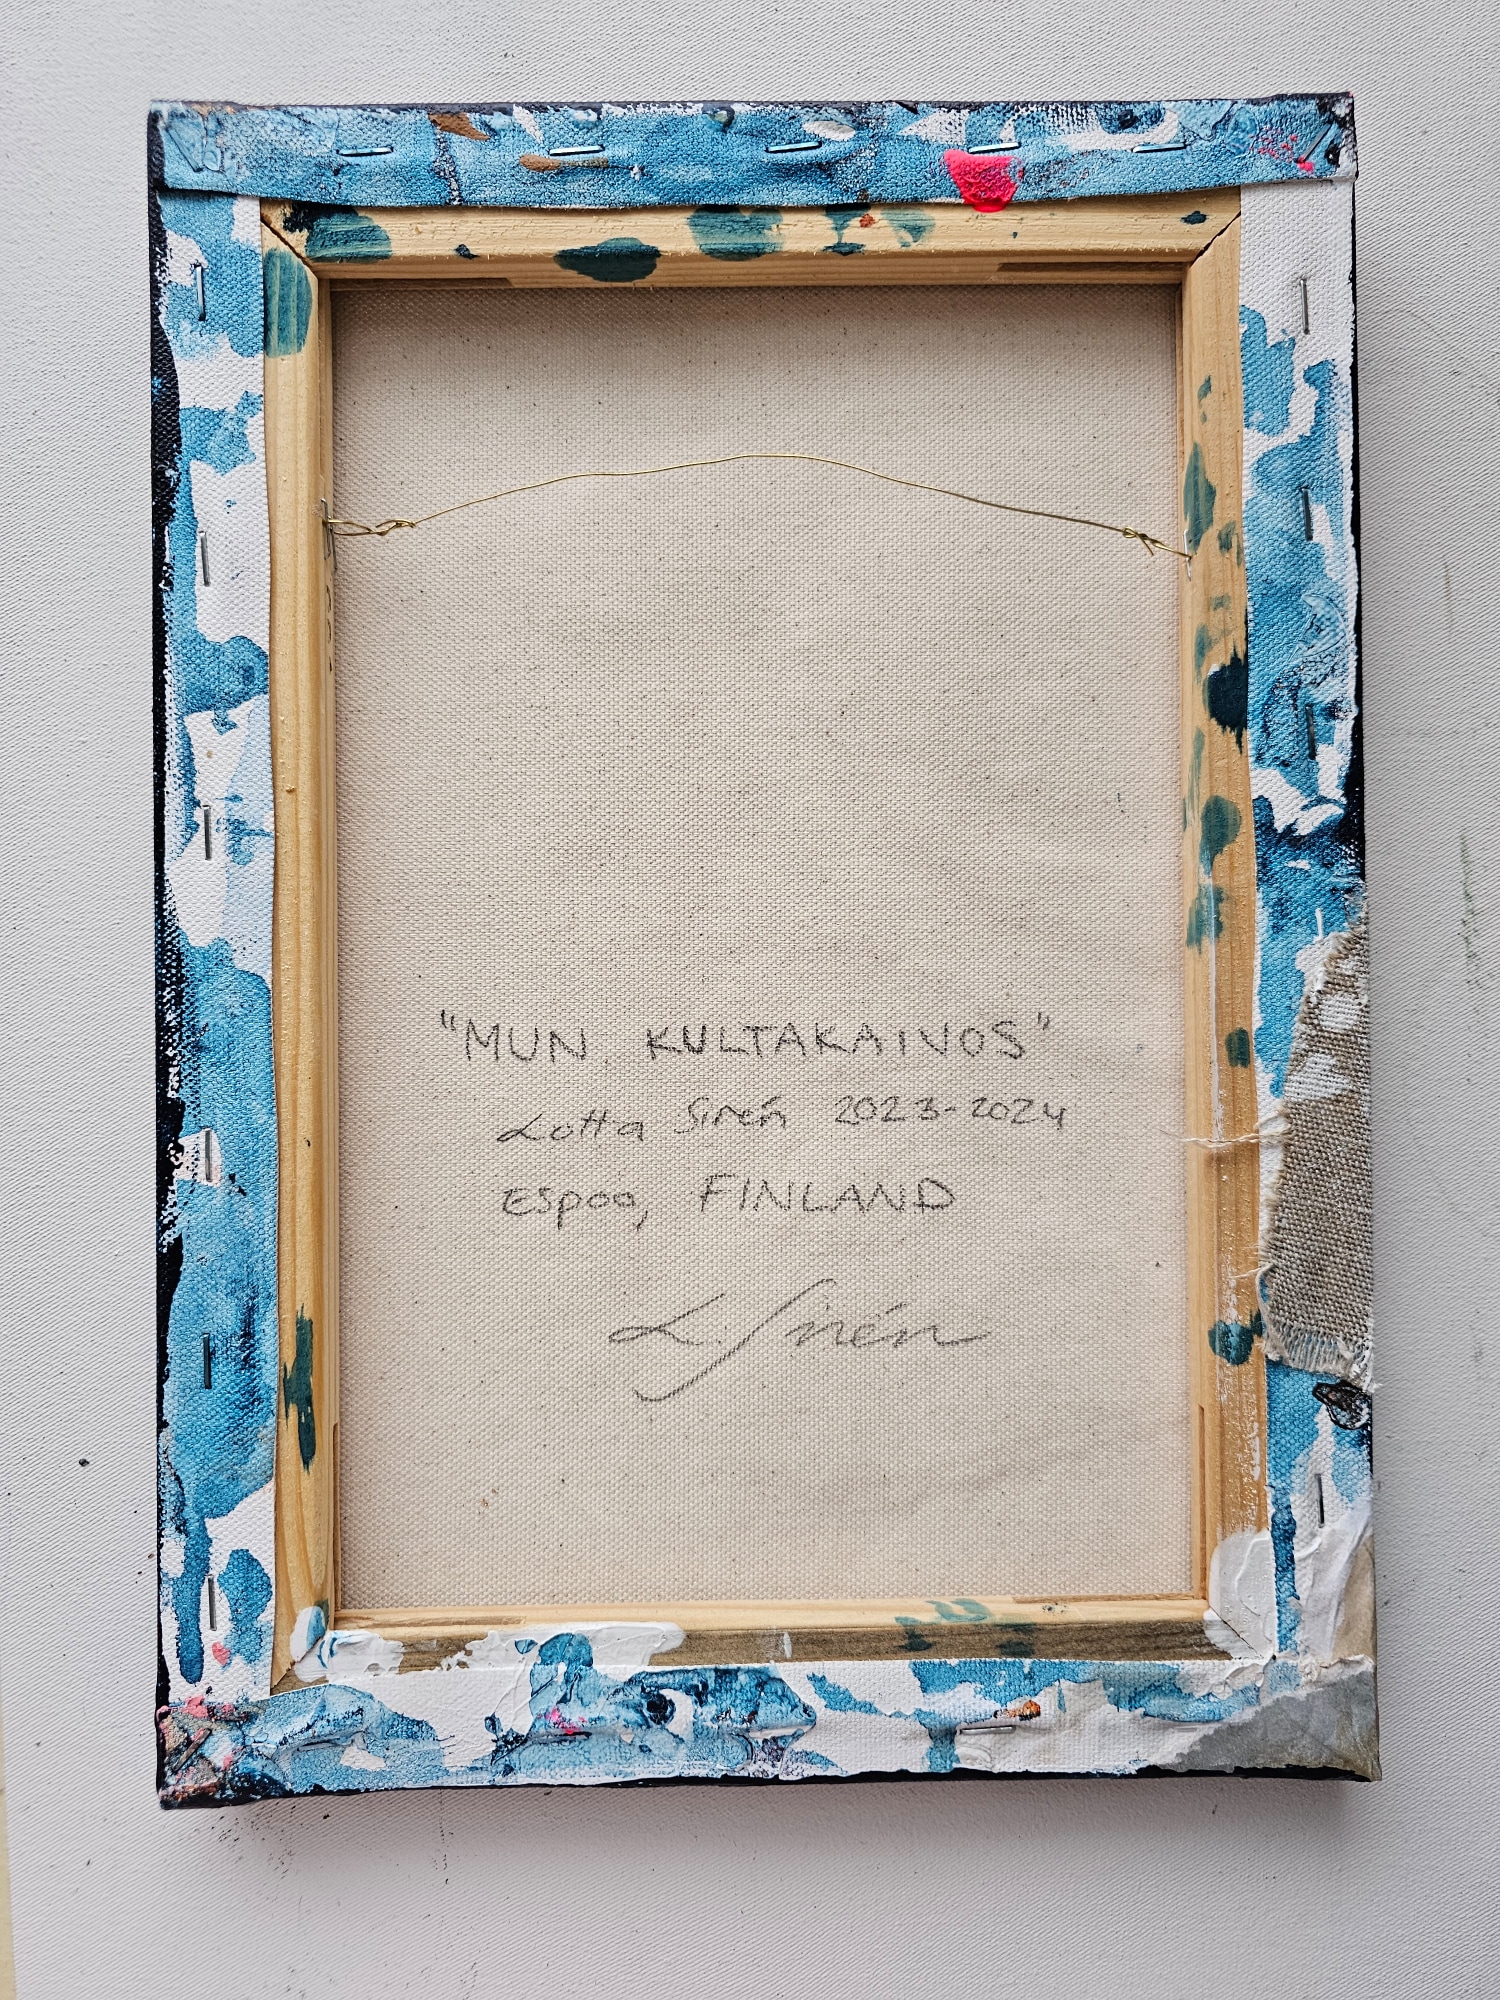 "MUN KULTAKAIVOS"
Lotta Sirén 2023-2024
ESpoo, FINLAND
L. Sirén